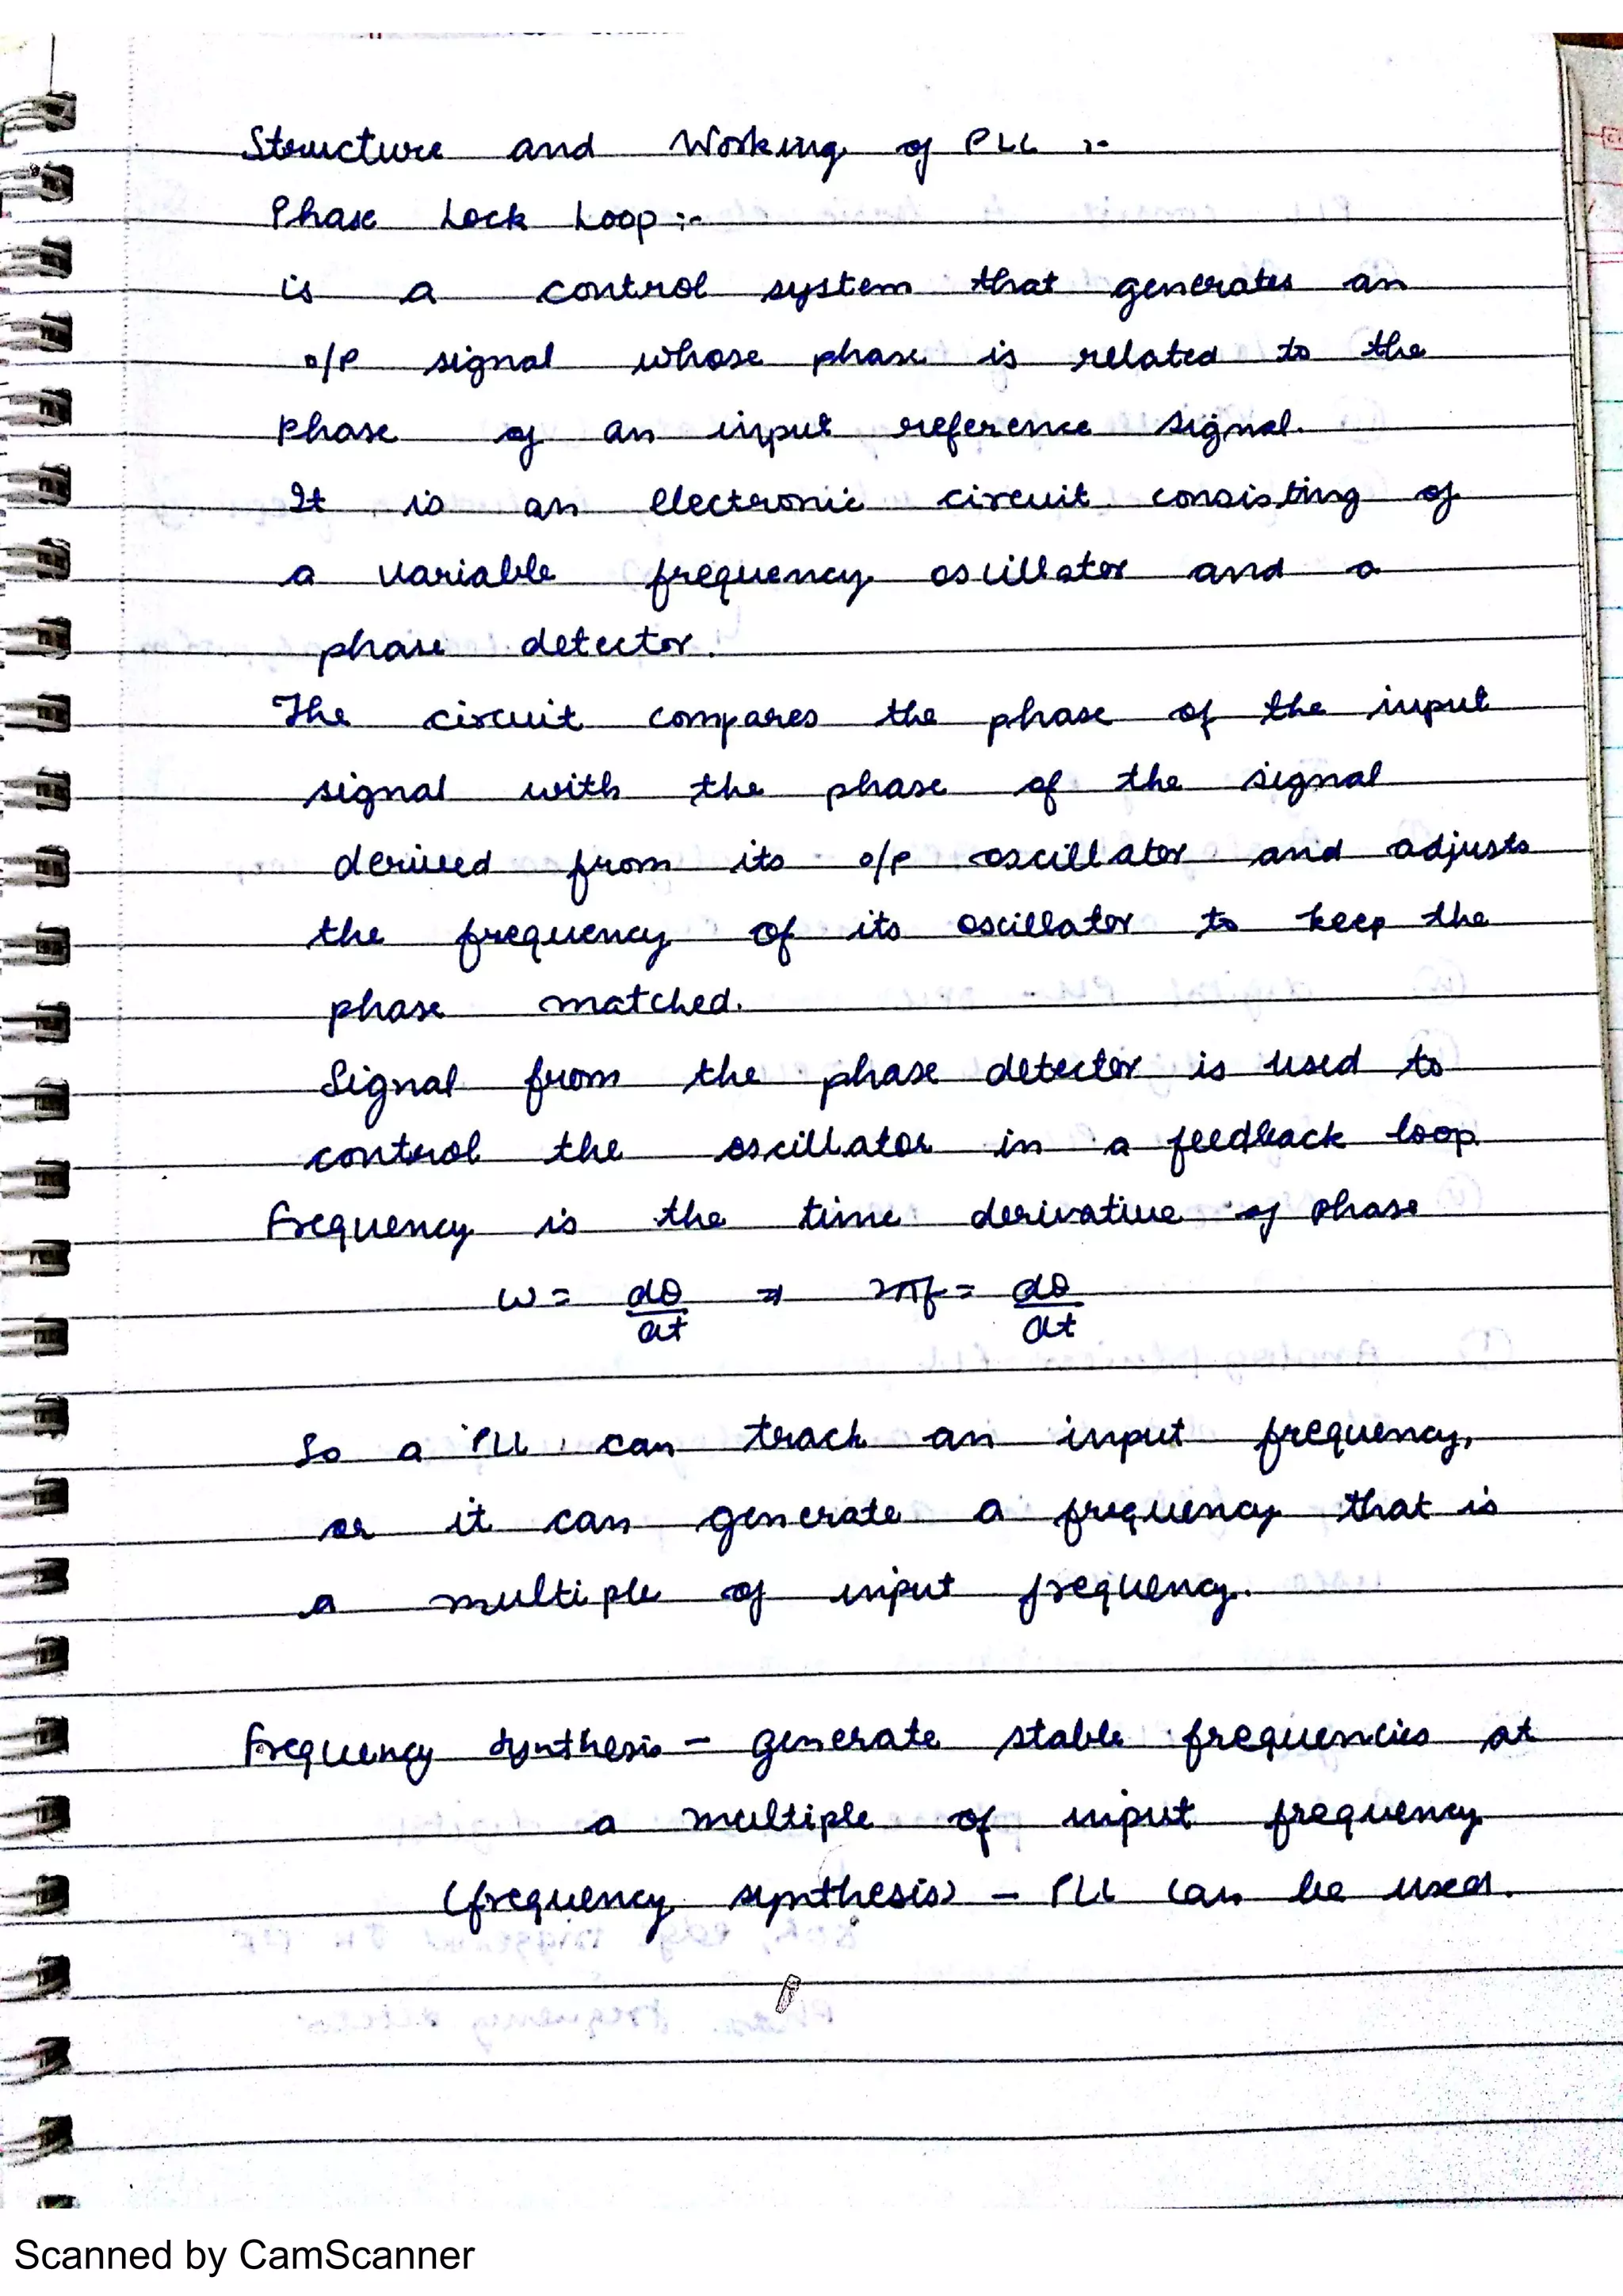 Structure and Working of PLL :-
Phase Lock Loop :-
is a control system that generates an
o/p signal whose phase is related to the
phase of an input reference signal.
It is an electronic circuit consisting of
a variable frequency oscillator and a
phase detector.
The circuit compares the phase of the input
signal with the phase of the signal
derived from its o/p oscillator and adjusts
the frequency of its oscillator to keep the
phase matched.
Signal from the phase detector is used to
control the oscillator in a feedback loop.
Frequency is the time derivative of phase
ω = dθ/dt ⇒ 2πf = dθ/dt
So a PLL can track an input frequency,
or it can generate a frequency that is
a multiple of input frequency.
Frequency Synthesis - generate stable frequencies at
a multiple of input frequency
(frequency synthesis) - PLL can be used.
Scanned by CamScanner